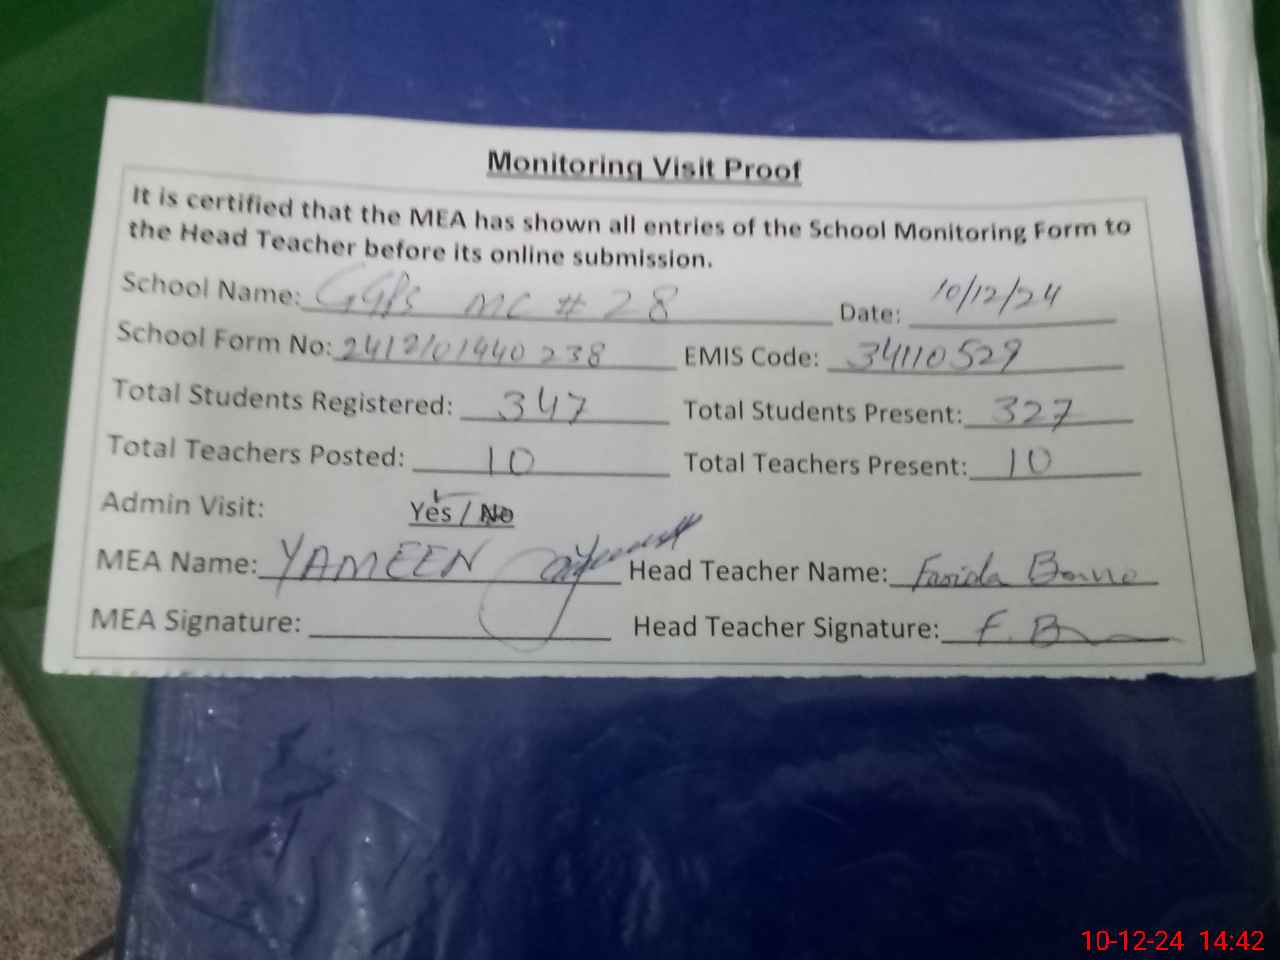 Monitoring Visit Proof
It is certified that the MEA has shown all entries of the School Monitoring Form to
the Head Teacher before its online submission.
School Name: GGPS MC # 28 Date: 10/12/24
School Form No: 2412101440238 EMIS Code: 34110529
Total Students Registered: 347 Total Students Present: 327
Total Teachers Posted: 10 Total Teachers Present: 10
Admin Visit: Yes / No
MEA Name: YAMEEN Head Teacher Name: Farida Bano
MEA Signature: Head Teacher Signature: F. B
10-12-24 14:42